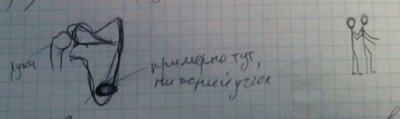 рука
примерно тут,
нижний угол